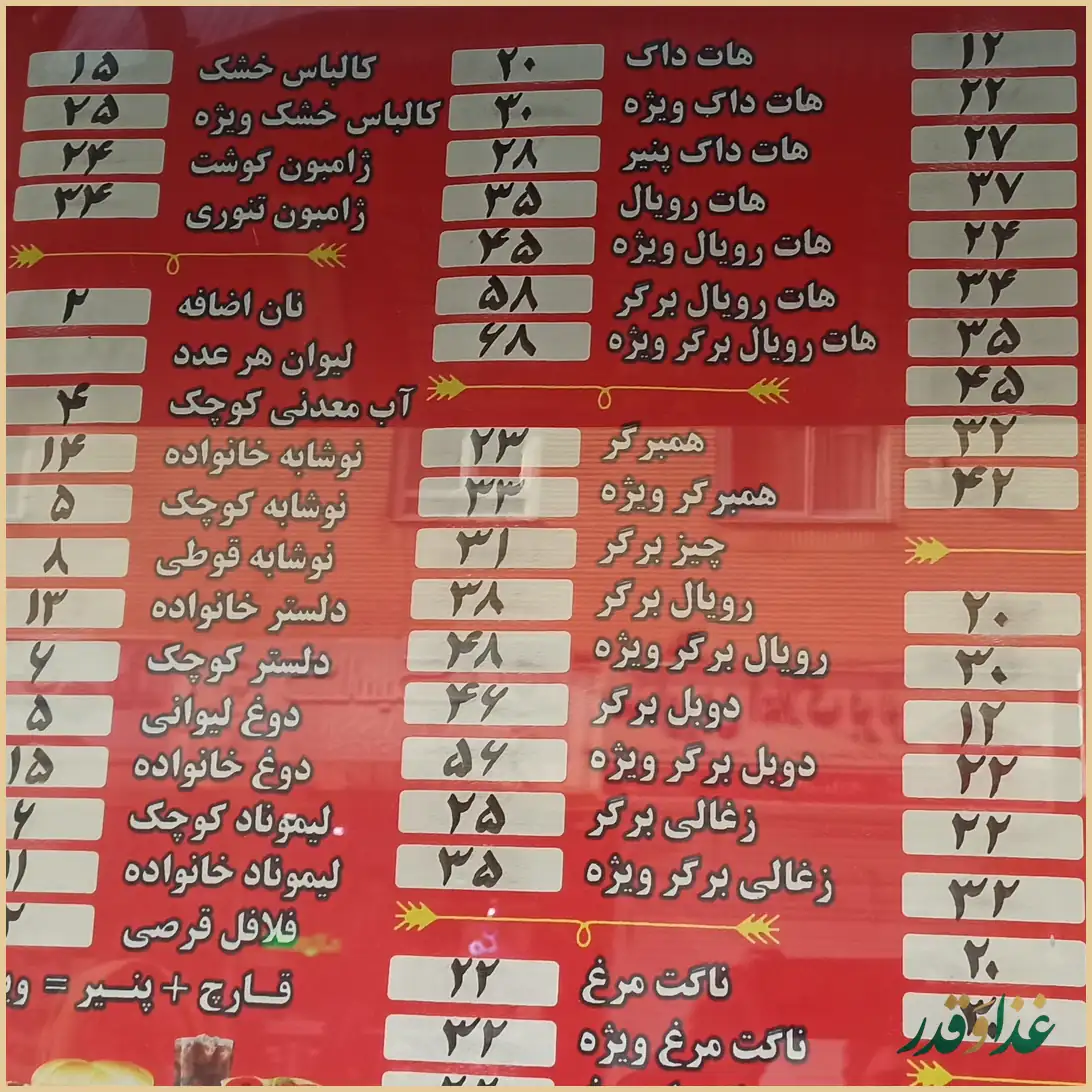 ۱۲
۲۲
۲۷
۳۷
۲۴
۳۴
۳۵
۴۵
۳۲
۴۲
۲۰
۳۰
۱۲
۲۲
۲۲
۳۲
۲۰
هات داک ۲۰
هات داگ ویژه ۳۰
هات داک پنیر ۲۸
هات رویال ۳۵
هات رویال ویژه ۴۵
هات رویال برگر ۵۸
هات رویال برگر ویژه ۶۸
همبرگر ۲۳
همبرگر ویژه ۳۳
چیز برگر ۳۱
رویال برگر ۳۸
رویال برگر ویژه ۴۸
دوبل برگر ۴۶
دوبل برگر ویژه ۵۶
زغالی برگر ۲۵
زغالی برگر ویژه ۳۵
ناگت مرغ ۲۲
ناگت مرغ ویژه ۳۲
کالباس خشک ۱۵
کالباس خشک ویژه ۲۵
ژامبون گوشت ۲۴
ژامبون تنوری ۳۴
نان اضافه ۲
لیوان هر عدد
آب معدنی کوچک ۴
نوشابه خانواده ۱۴
نوشابه کوچک ۵
نوشابه قوطی ۸
دلستر خانواده ۱۳
دلستر کوچک ۶
دوغ لیوانی ۵
دوغ خانواده ۱۵
لیموناد کوچک ۶
لیموناد خانواده ۱۱
فلافل قرصی ۲
قارچ + پنیر =
غذا و قدر